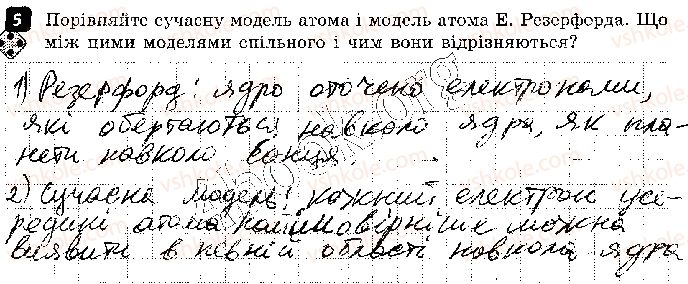 5 Порівняйте сучасну модель атома і модель атома Е. Резерфорда. Що
між цими моделями спільного і чим вони відрізняються?
1) Резерфорд: ядро оточено електронами,
які обертаються навколо ядра, як пла-
нети навколо Сонця.
2) Сучасна модель: кожний електрон усе-
редині атома найімовірніше можна
виявити в певній області навколо ядра